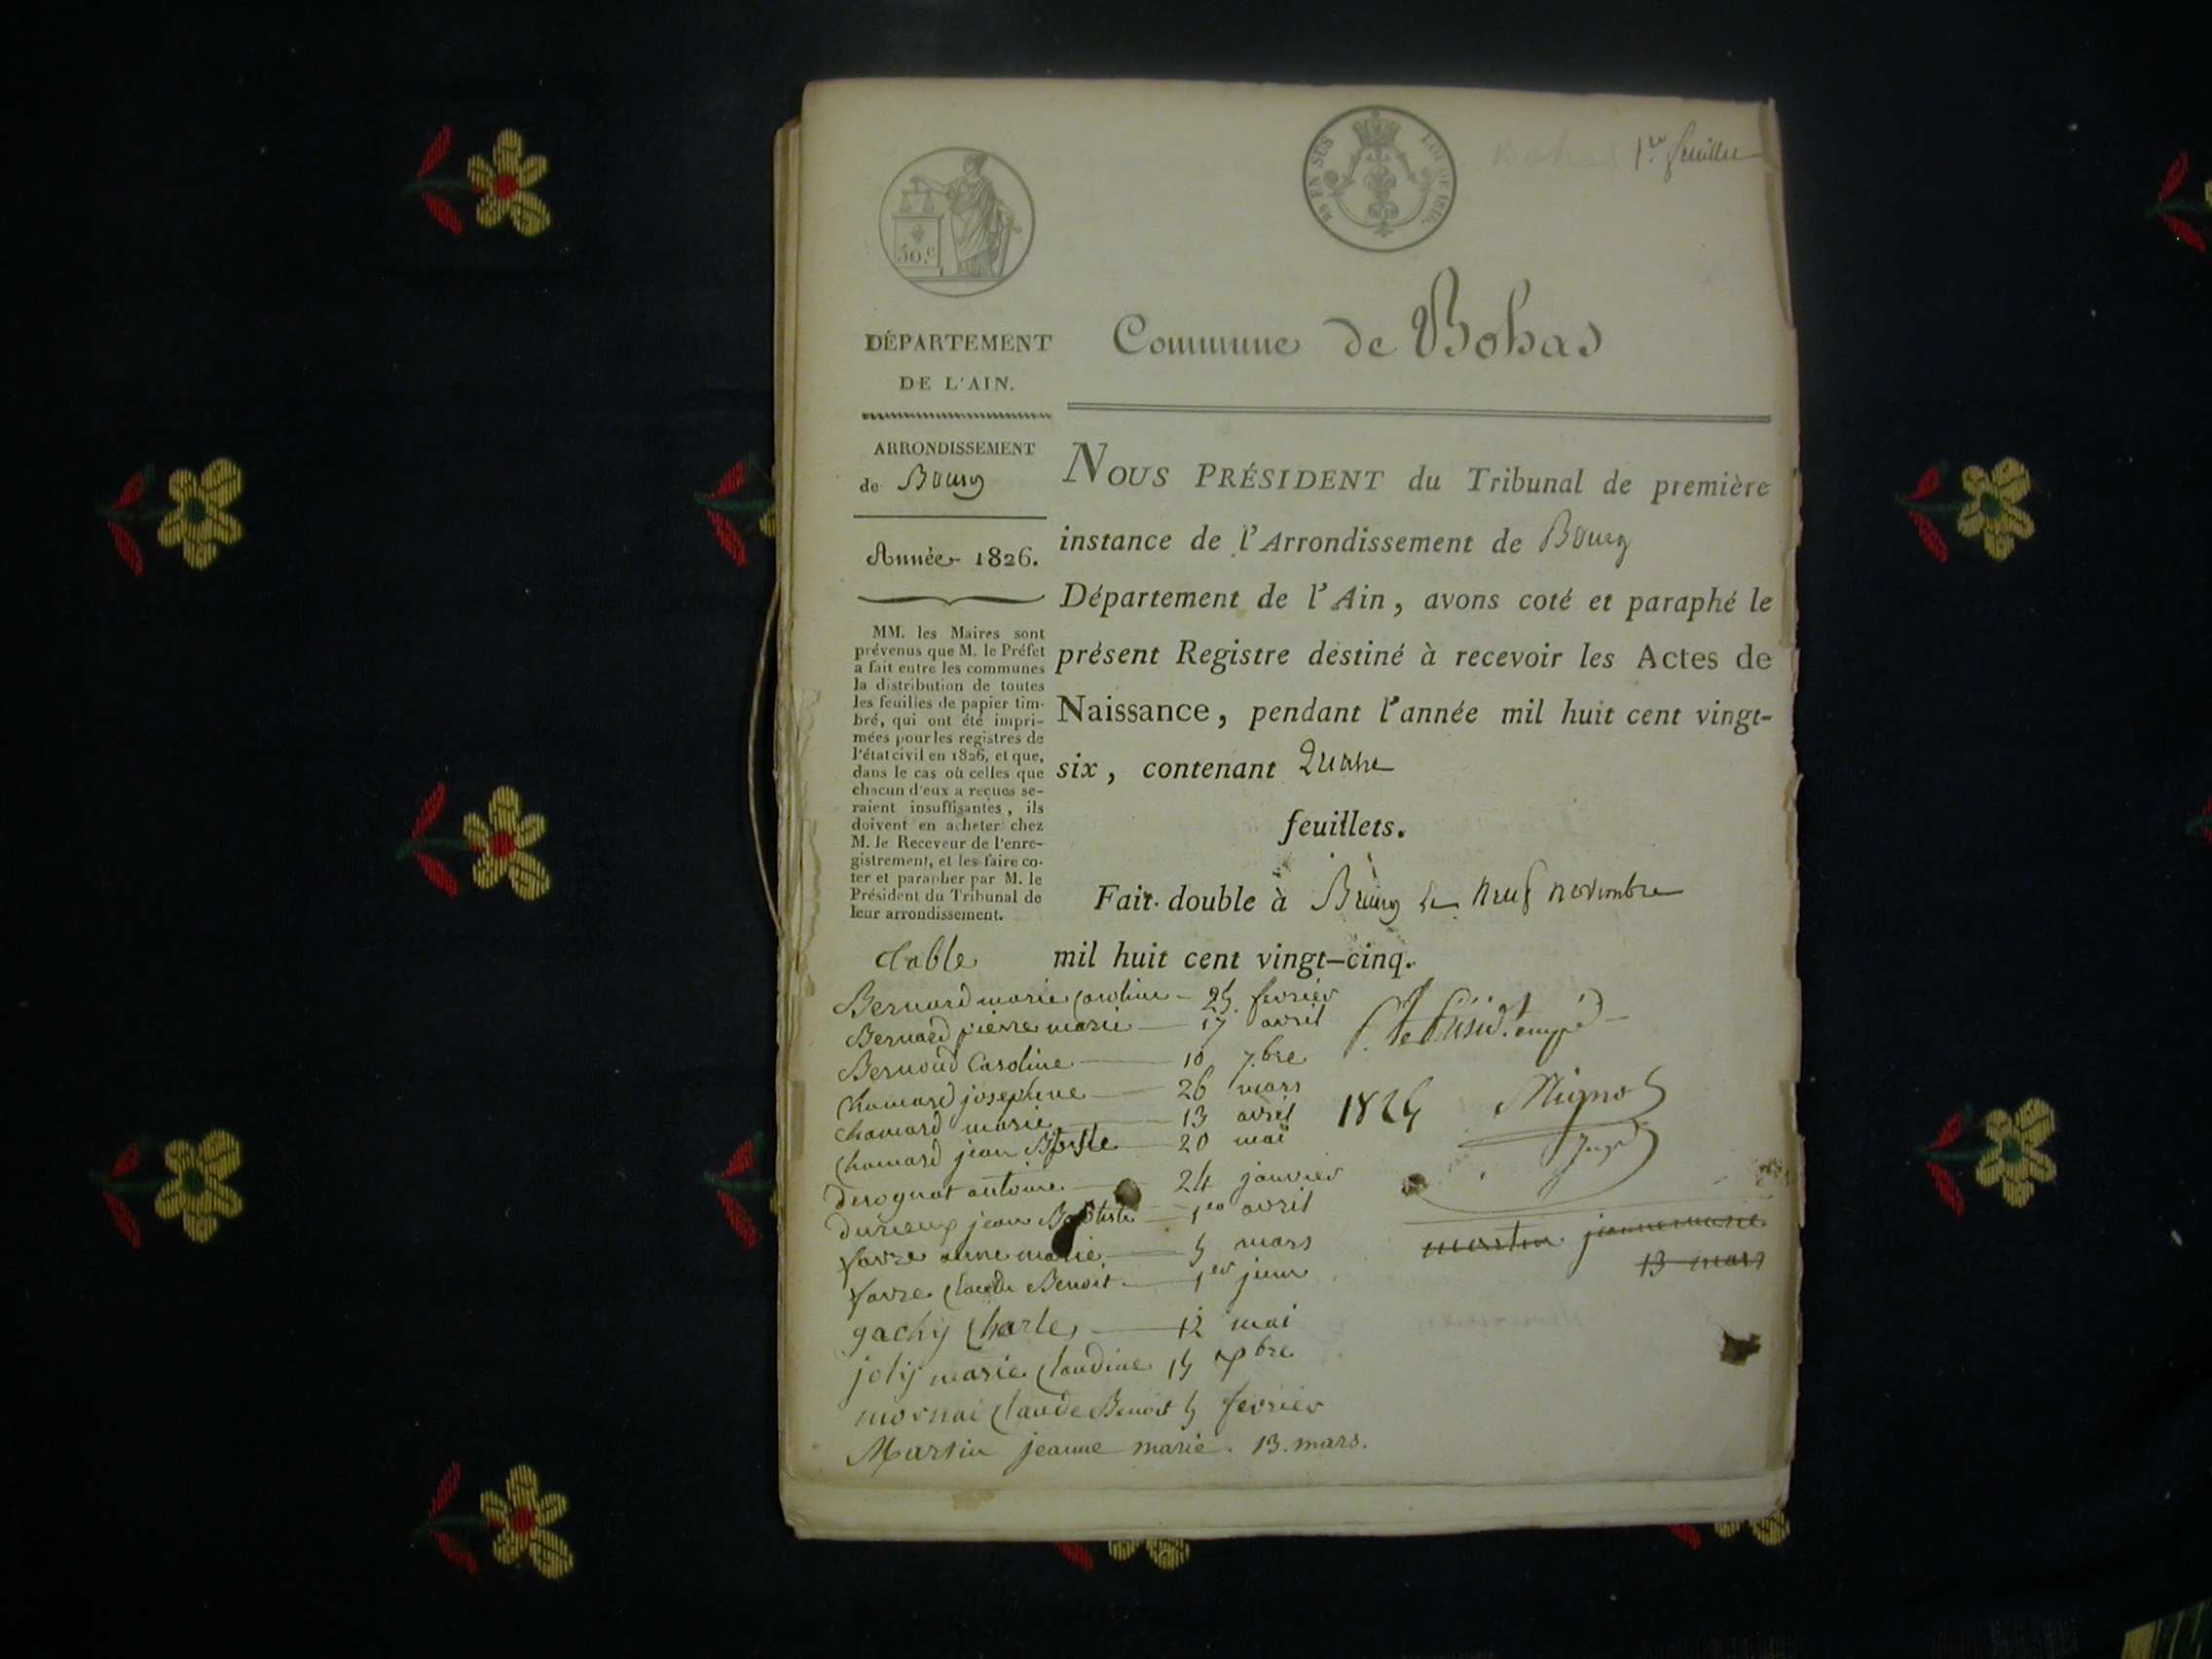 Bohas 1er feuillet
10 EN SUS
LOI DE 1816.
50.c
Commune de Bohas
DÉPARTEMENT
DE L'AIN.
ARRONDISSEMENT
de Bourg
Année 1826.
MM. les Maires sont
prévenus que M. le Préfet
a fait entre les communes
la distribution de toutes
les feuilles de papier tim-
bré, qui ont été impri-
mées pour les registres de
l'état civil en 1826, et que,
dans le cas où celles que
chacun d'eux a reçues se-
raient insuffisantes, ils
doivent en acheter chez
M. le Receveur de l'enre-
gistrement, et les faire co-
ter et parapher par M. le
Président du Tribunal de
leur arrondissement.
NOUS PRÉSIDENT du Tribunal de première
instance de l'Arrondissement de Bourg
Département de l'Ain, avons coté et paraphé le
présent Registre destiné à recevoir les Actes de
Naissance, pendant l'année mil huit cent vingt-
six, contenant Quatre
feuillets.
Fait double à Bourg le neuf novembre
mil huit cent vingt-cinq.
table
Bernard marie Caroline - 25 fevrier
Bernard pierre marie - 17 avril
Bernoud Caroline - 10 7.bre
Chamard josephine - 26 mars
Chamard marie - 13 avril
Chamard jean Bptiste - 20 mai
derognat antoine - 24 janvier
durieux jean Baptiste - 1er avril
favre anne marie - 5 mars
favre Claude Benoit - 1er juin
gachy Charles - 12 mai
joly marie Claudine 15 bre
mornai Claude Benoit 5 fevrier
Martin jeanne marie. 13. mars.
le présid. empé
Mignot
Juge
martin jeanne marie
13 mars